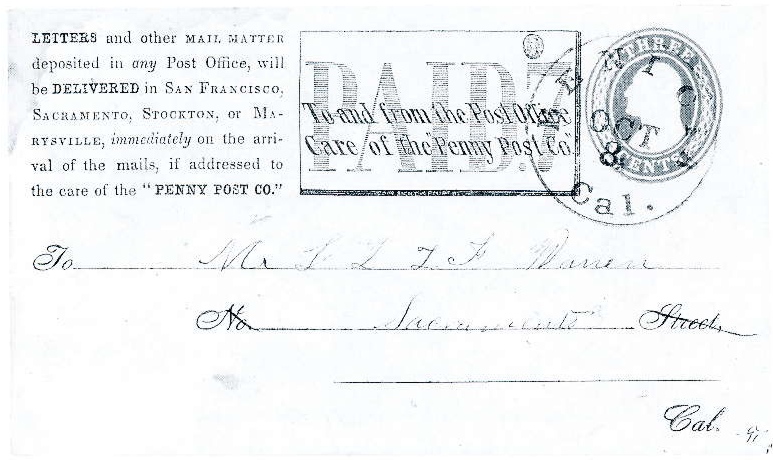 LETTERS and other MAIL MATTER
deposited in any Post Office, will
be DELIVERED in SAN FRANCISCO,
SACRAMENTO, STOCKTON, or MA-
RYSVILLE, immediately on the arri-
val of the mails, if addressed to
the care of the "PENNY POST CO."
PAID.7
To and from the Post Office
Care of the "Penny Post Co."
THREE
CENTS
OCT
8
Cal.
To Mr L L T F Warren
No. Sacramento Street,
Cal.